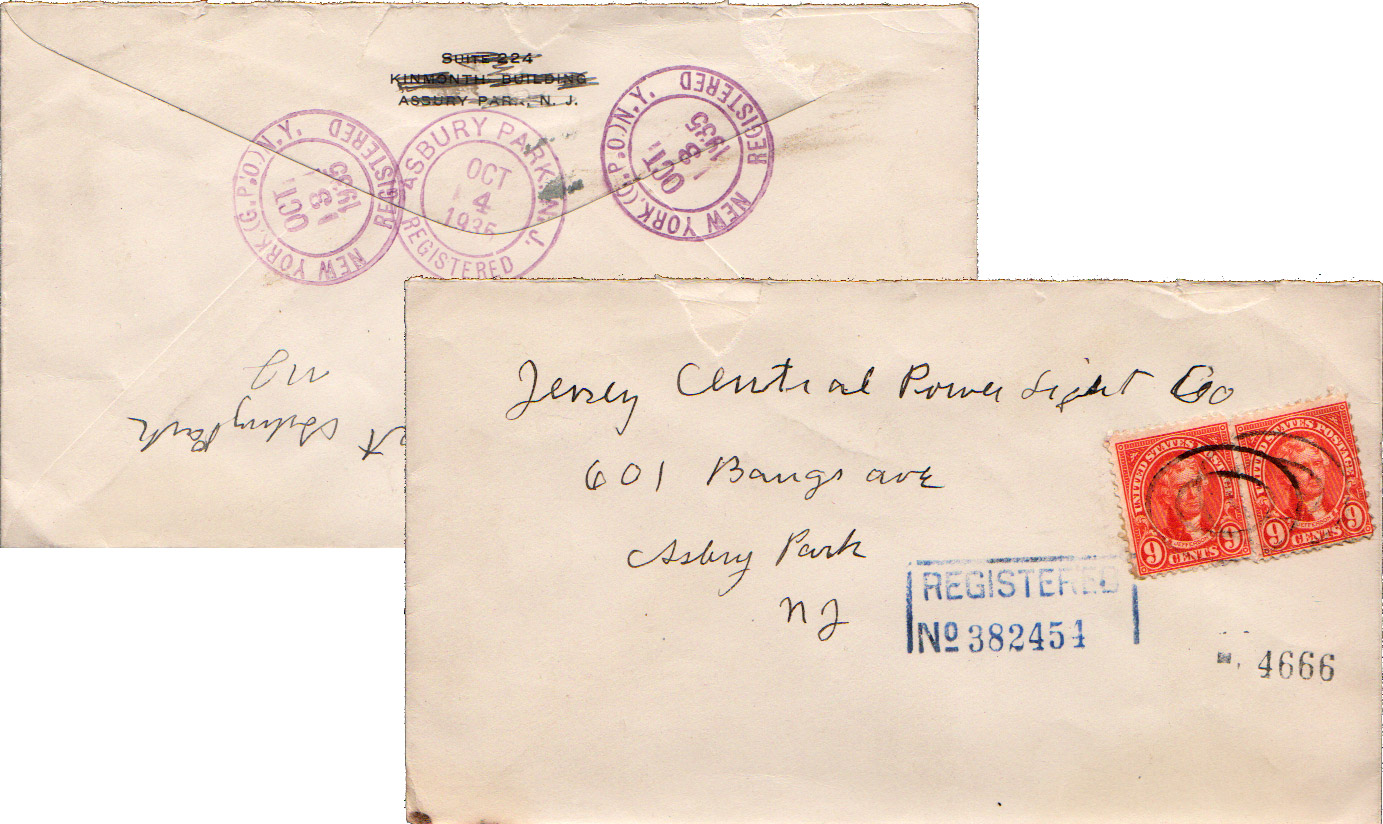 SUITE 224
KINMONTH BUILDING
ASBURY PARK, N. J.
NEW YORK, (G.P.O.) N.Y. REGISTERED
OCT
3
1935
ASBURY PARK, N.J.
OCT
4
1935
REGISTERED
NEW YORK, (G.P.O.) N.Y. REGISTERED
OCT
1935
Asbury Park
NJ
Jersey Central Power Light Co
601 Bangs ave
Asbry Park
NJ
UNITED STATES POSTAGE
9 CENTS 9
UNITED STATES POSTAGE
9 CENTS 9
REGISTERED
No 382454
4666